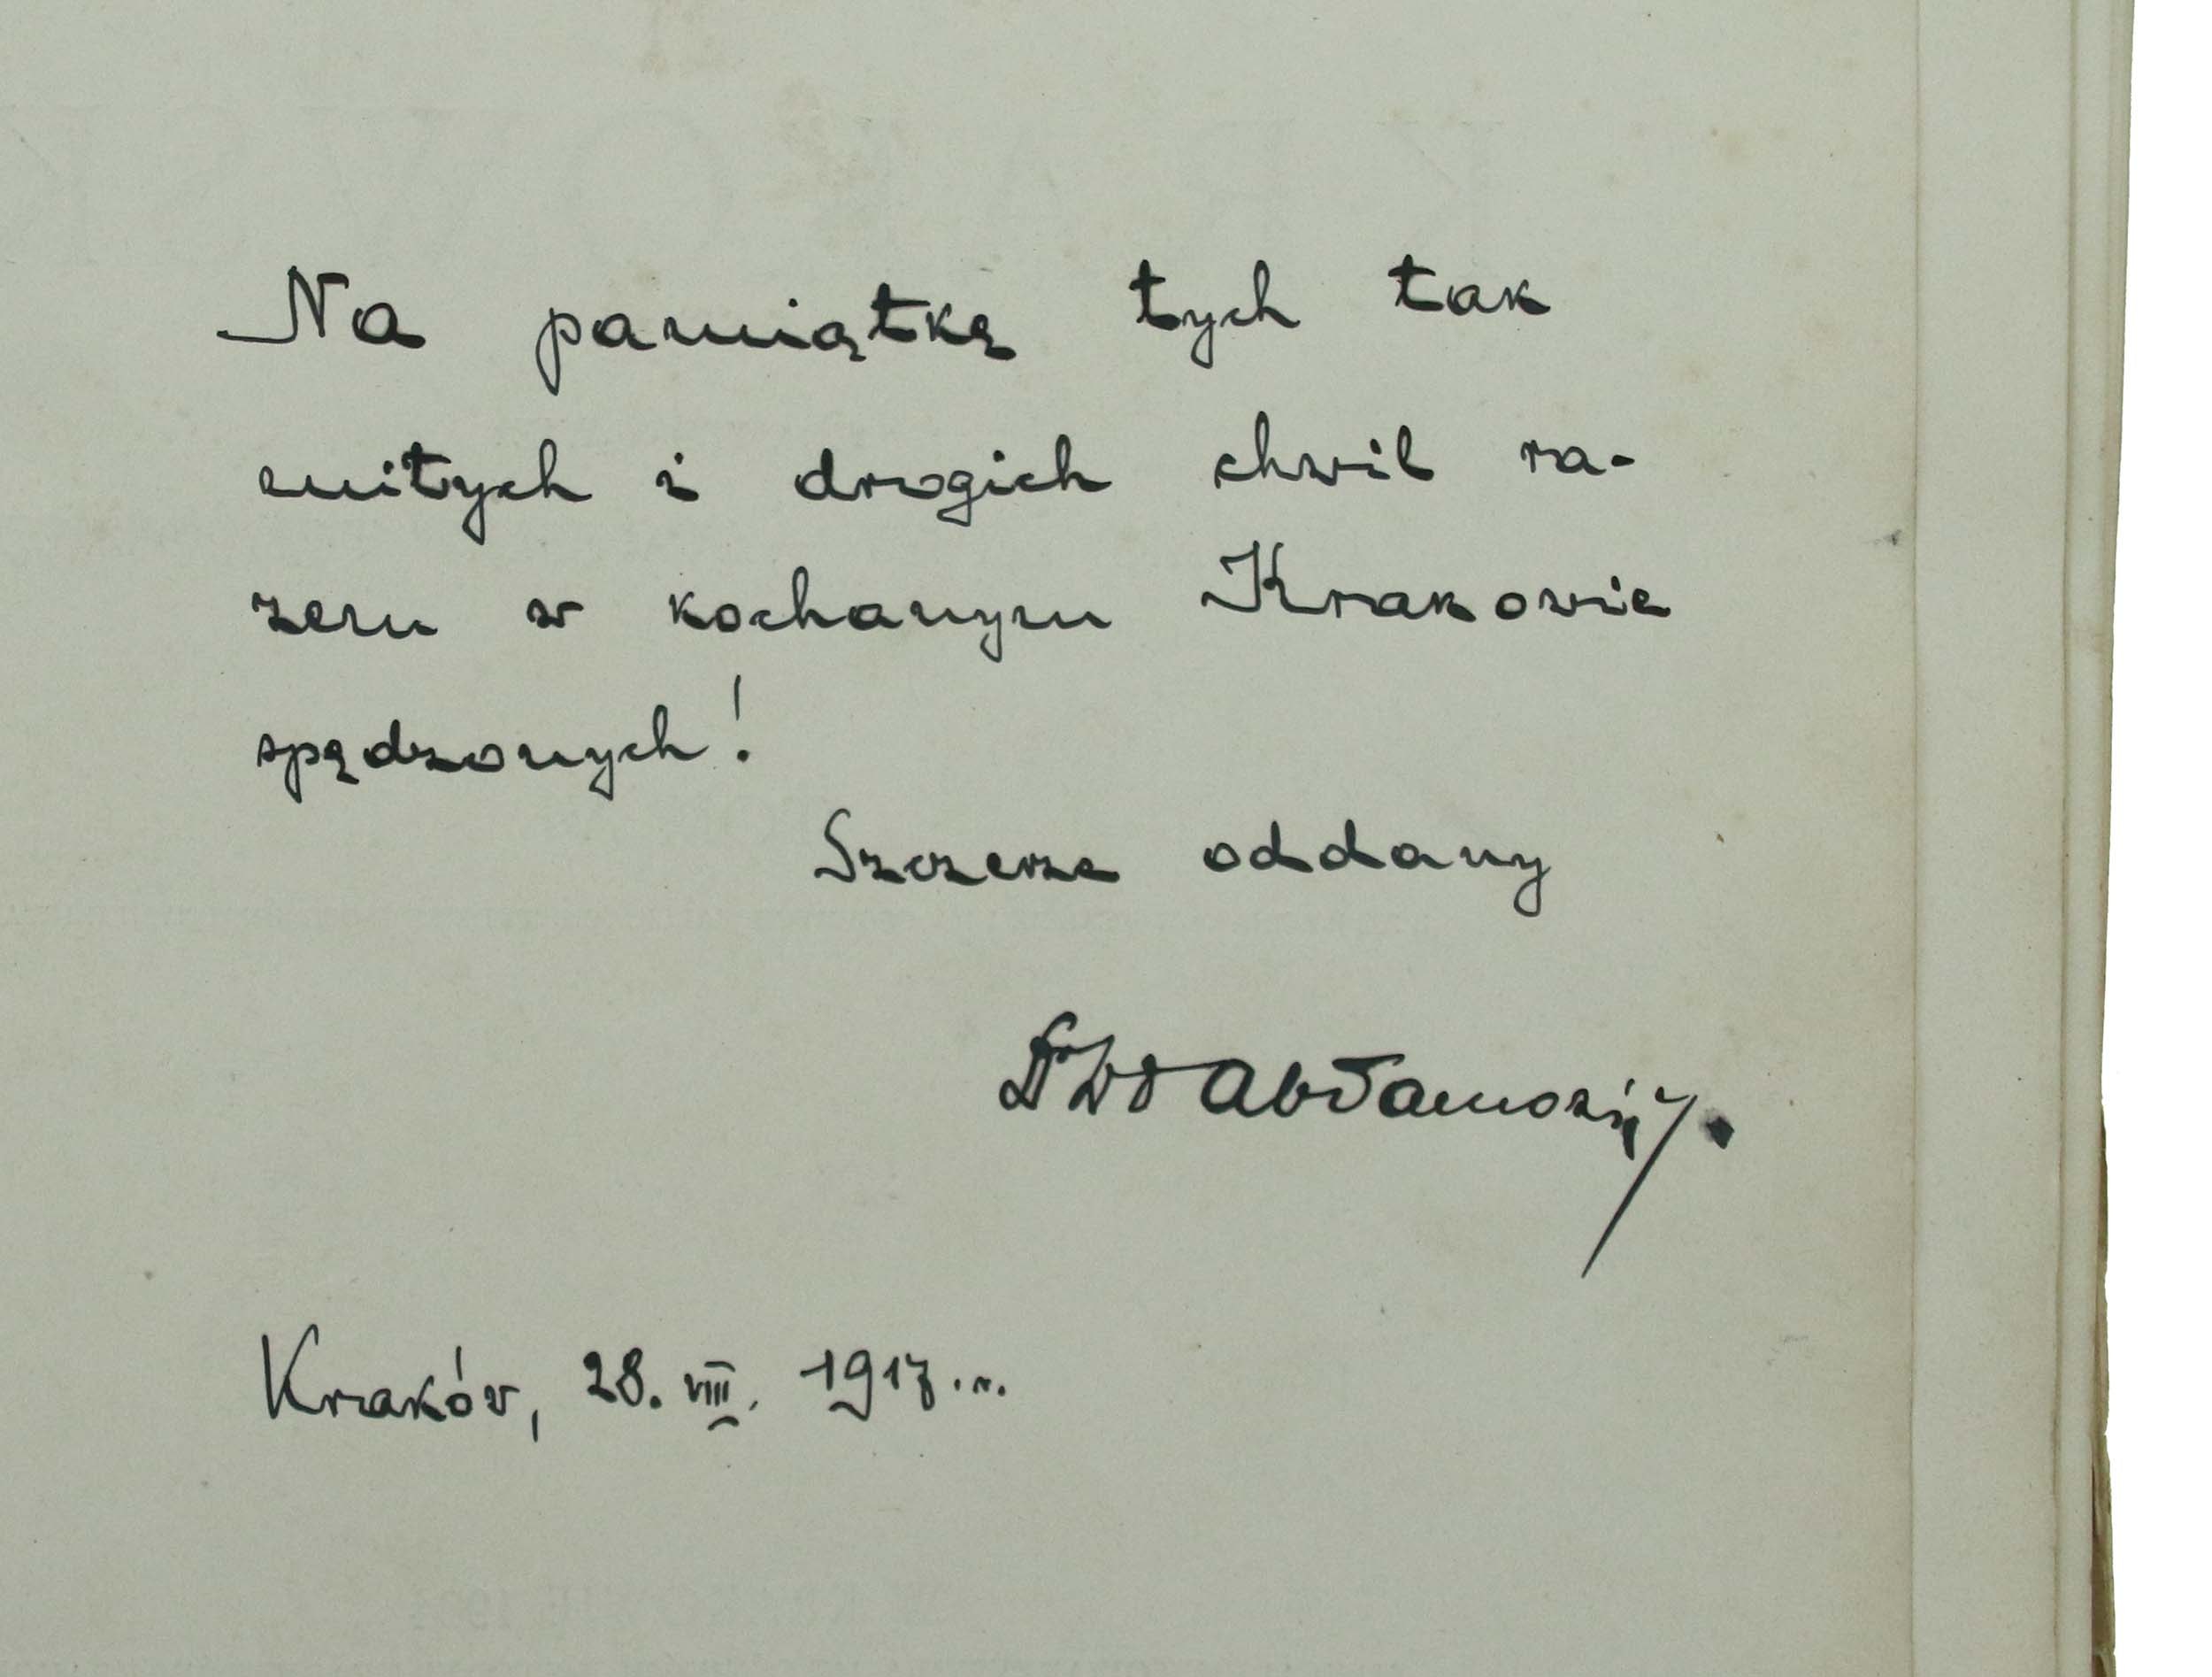 Na pamiątkę tych tak
miłych i drogich chwil ra-
zem w kochanym Krakowie
spędzonych!
Szczerze oddany
Kraków, 28. VIII. 1917. r.